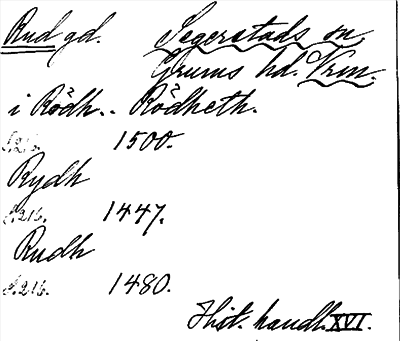 Rud gd. Segerstads sn
Grums hd. Vrm.
i Rödh.. Rödheth.
S.216. 1500.
Rydh
S.216. 1447.
Rudh
S.216. 1480.
Hist. handl. XVI.